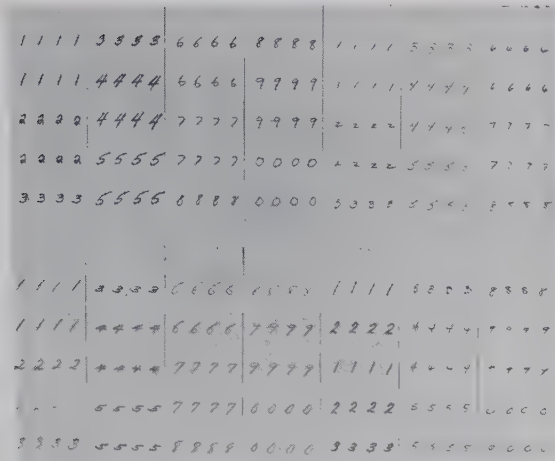 1 1 1 1 3 3 3 3 6 6 6 6 8 8 8 8 1 1 1 1 3 3 3 3 6 6 6 6
1 1 1 1 4 4 4 4 6 6 6 6 9 9 9 9 1 1 1 1 4 4 4 4 6 6 6 6
2 2 2 2 4 4 4 4 7 7 7 7 9 9 9 9 2 2 2 2 4 4 4 7 7 7
2 2 2 2 5 5 5 5 7 7 7 7 0 0 0 0 2 2 2 2 5 5 5 5 7 7 7 7
3 3 3 3 5 5 5 5 8 8 8 8 0 0 0 0 3 3 3 3 5 5 5 5 8 8 8 8
1 1 1 1 3 3 3 3 6 6 6 6 8 8 8 8 1 1 1 1 3 3 3 3 8 8 8 8
1 1 1 1 4 4 4 4 6 6 6 6 9 9 9 9 2 2 2 2 4 4 4 4 9 9 9 9
2 2 2 2 4 4 4 4 7 7 7 7 9 9 9 9 1 1 1 1 4 4 4 4 9 9 9 9
5 5 5 5 7 7 7 7 0 0 0 0 2 2 2 2 5 5 5 5 0 0 0 0
3 3 3 3 5 5 5 5 8 8 8 8 0 0 0 0 3 3 3 3 5 5 5 5 0 0 0 0